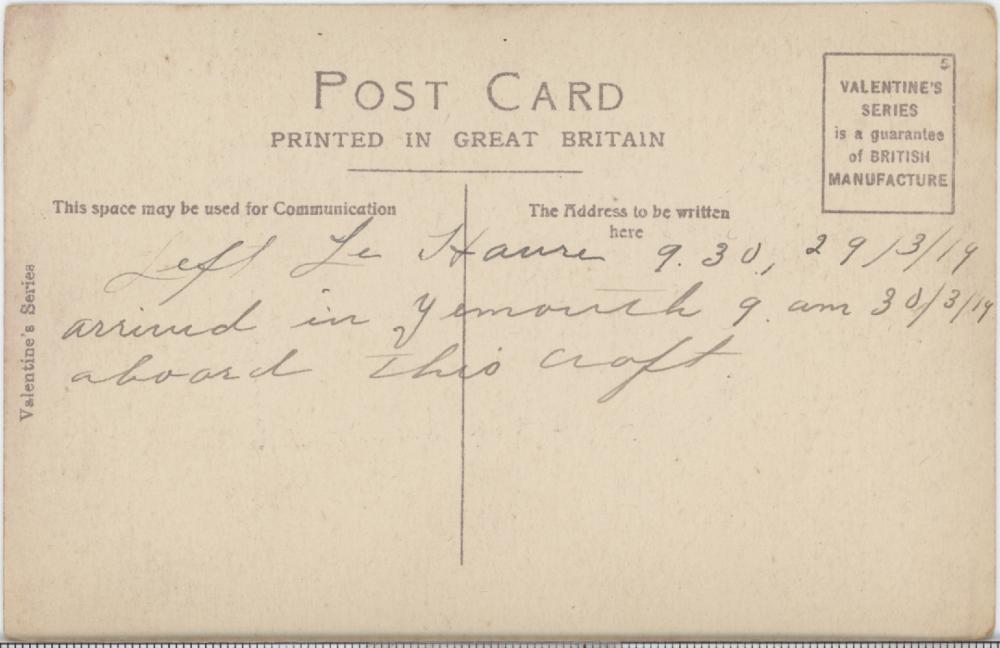 POST CARD
PRINTED IN GREAT BRITAIN
5
VALENTINE'S
SERIES
is a guarantee
of BRITISH
MANUFACTURE
This space may be used for Communication
The Address to be written
here
Left Le Havre 9.30, 29/3/19
arrived in Yemouth 9. am 30/3/19
aboard this craft
Valentine's Series